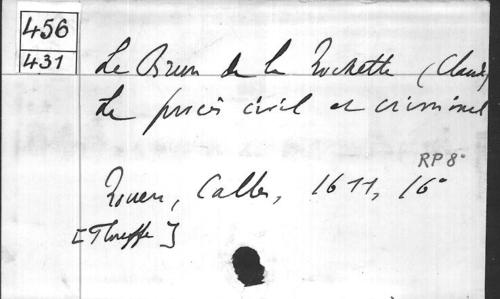 456
431
Le Brun de la Rochette (Claude)
Le procès civil et criminel
RP 8°
Rouen, Calles, 1611, 16°